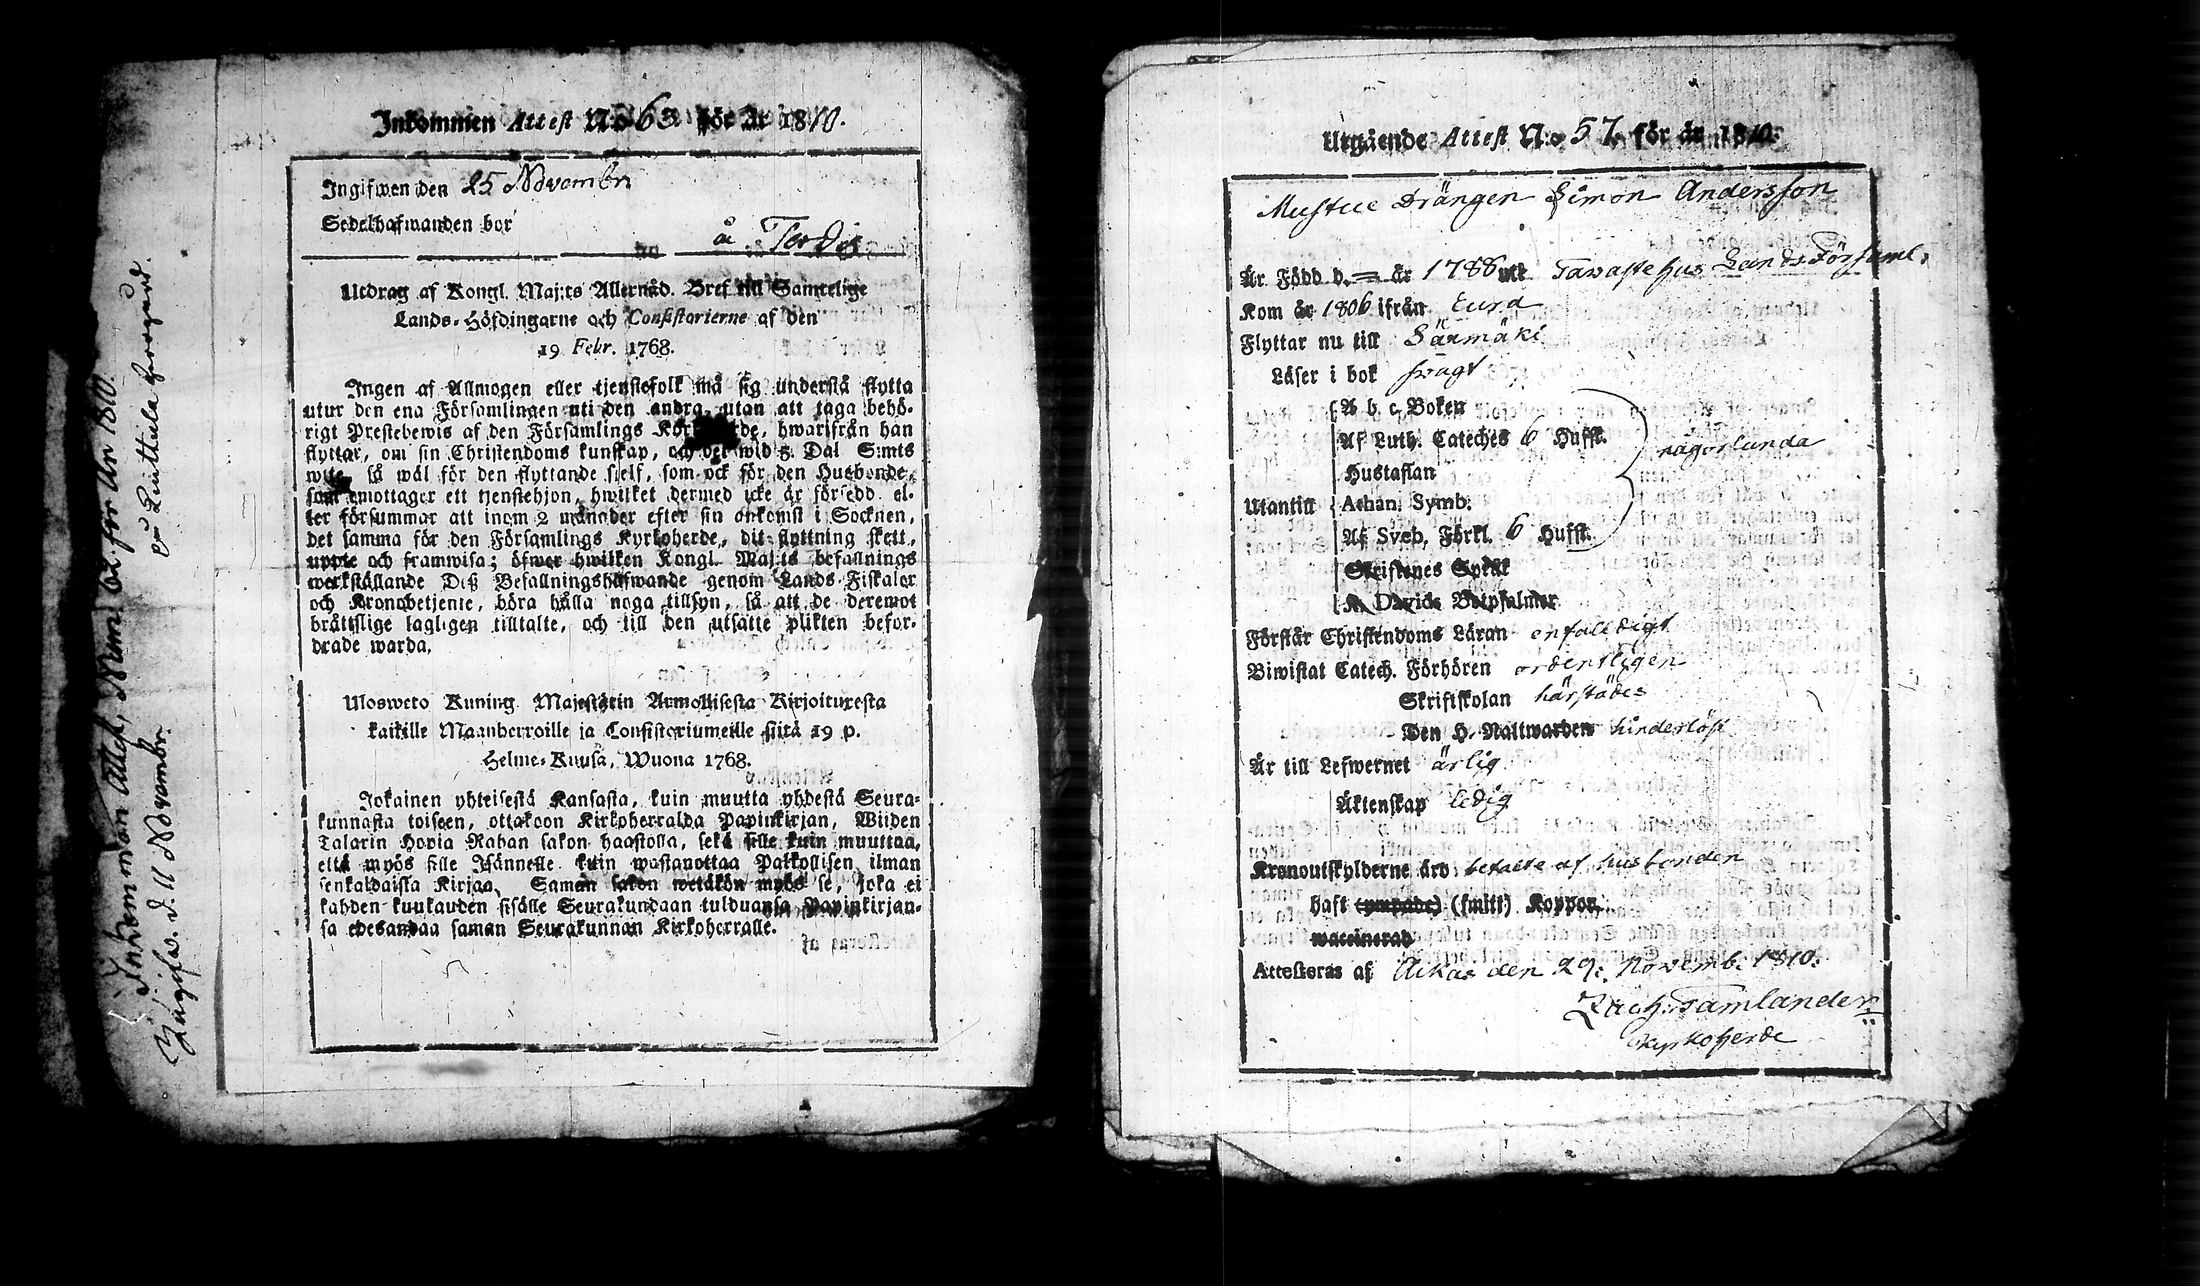 Inkommen Attest N:o 63 för år 1810.
Ingifwen den 25 Novembr
Sedelhafwanden bor
å
Utdrag af Kongl. Maj:ts Allernåd. Bref till Samtelige
Lands-Höfdingarne och Consistorierne af den
19 Febr. 1768.
Ingen af Allmogen eller tjenstefolk må sig understå flytta
utur den ena Församlingen uti den andra, utan att taga behö-
rigt Prestebewis af den Församlings Kyrkoherde, hwarifrån han
flyttar, om sin Christendoms kunskap, och det wid 5. Dal S:mts
wite, så wäl för den flyttande sjelf, som ock för den Husbonde,
som emottager ett tjenstehjon, hwilket dermed icke är försedd, el-
ler försummar att inom 2 månader efter sin ankomst i Socknen,
det samma för den Församlings Kyrkoherde, dit flyttning skett,
uppte och framwisa; öfwer hwilken Kongl. Maj:ts befallnings
werkställande Deß Befallningshafwande genom Lands-Fiskaler
och Kronobetjente, böra hålla noga tillsyn, så att de deremot
bråttslige lagligen tilltalte, och till den utsatte plikten befor-
drade warda.
Ulosweto Kuning. Majestätin Armollisesta Kirjoituxesta
kaikille Maanherroille ja Consistoriumeille siitä 19 p.
Helme-Kuusa, Wuona 1768.
Jokainen yhteisestä Kansasta, kuin muutta yhdestä Seura-
kunnasta toiseen, ottakoon Kirkoherralda Papinkirjan, Wiiden
Talarin Hopia Rahan sakon haastolla, sekä sille kuin muuttaa,
että myös sille Isännelle kuin wastanottaa Palkollisen ilman
senkaldaista Kirjaa. Saman sakon wetäkön myös se, joka ei
kahden kuukauden sisälle Seurakundaan tulduansa Papinkirjan-
sa edesandaa saman Seurakunnan Kirkoherralle.
Inkommen Attest, Num. 62. för År 1810.
Ingifw. d. 11 Novembr.
Utgående Attest N:o 57. för år 1810.
Drängen Simon Andersson
Är Född d. = år 1788 uti Tavastehus Lands Församl.
Kom år 1806 ifrån Eura
Flyttar nu till Säxmäki
Läser i bok svagt
A b c Boken
Af Luth. Cateches 6 Hufst.
någorlunda
Hustaflan
Utantill Athan. Symb.
Af Sveb. Förkl. 6 Hufst.
Skriftenes Språk
K. Davids Botpsalmer
Förstår Christendoms Läran enfaldigt
Biwistat Catech. Förhören ordentligen
Skriftskolan härstädes
Den H. Nattwarden hinderlöst
Är till Lefwernet ärlig
Äktenskap ledig
Kronoutskylderne äro betalte af husbonden
haft (ympade) (smitt) Koppor.
waccinerad
Attesteras af Akas den 29: Novemb. 1810.
Zach: Tamlander
Kyrkoherde